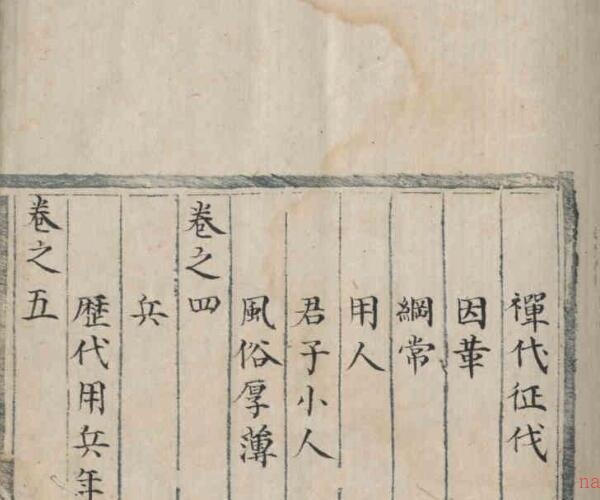 禪代征伐
因革
綱常
用人
君子小人
風俗厚薄
卷之四
兵
歷代用兵年
卷之五
na